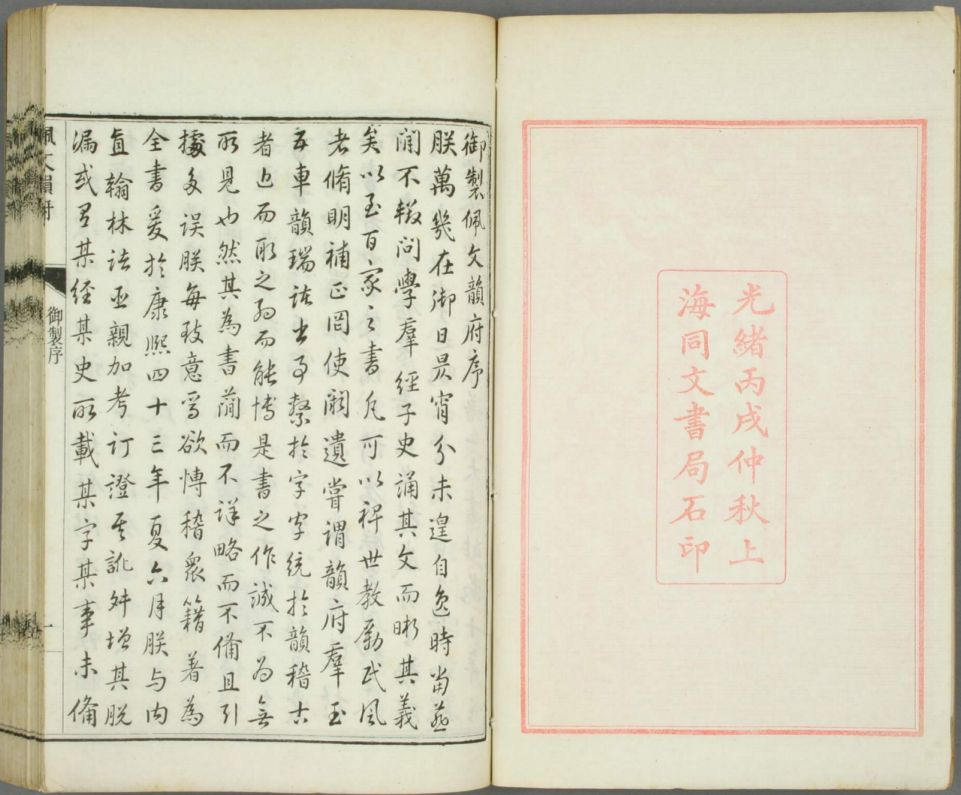 光緒丙戌仲秋上
海同文書局石印
御製佩文韻府序
朕萬幾在御日昃宵分未遑自逸時當燕
閒不輟問學羣經子史誦其文而晰其義
矣以至百家之書凡可以裨世教勵民風
者脩明補正罔使闕遺嘗謂韻府羣玉
五車韻瑞諸書事繫於字字統於韻稽古
者近而取之約而能博是書之作誠不為無
所見也然其為書簡而不詳略而不備且引
據多誤朕每致意焉欲博稽眾籍著為
全書爰於康熙四十三年夏六月朕與內
直翰林諸臣親加考訂證其訛舛增其脫
漏或有某經某史所載某字某事未備
佩文韻府
御製序
一